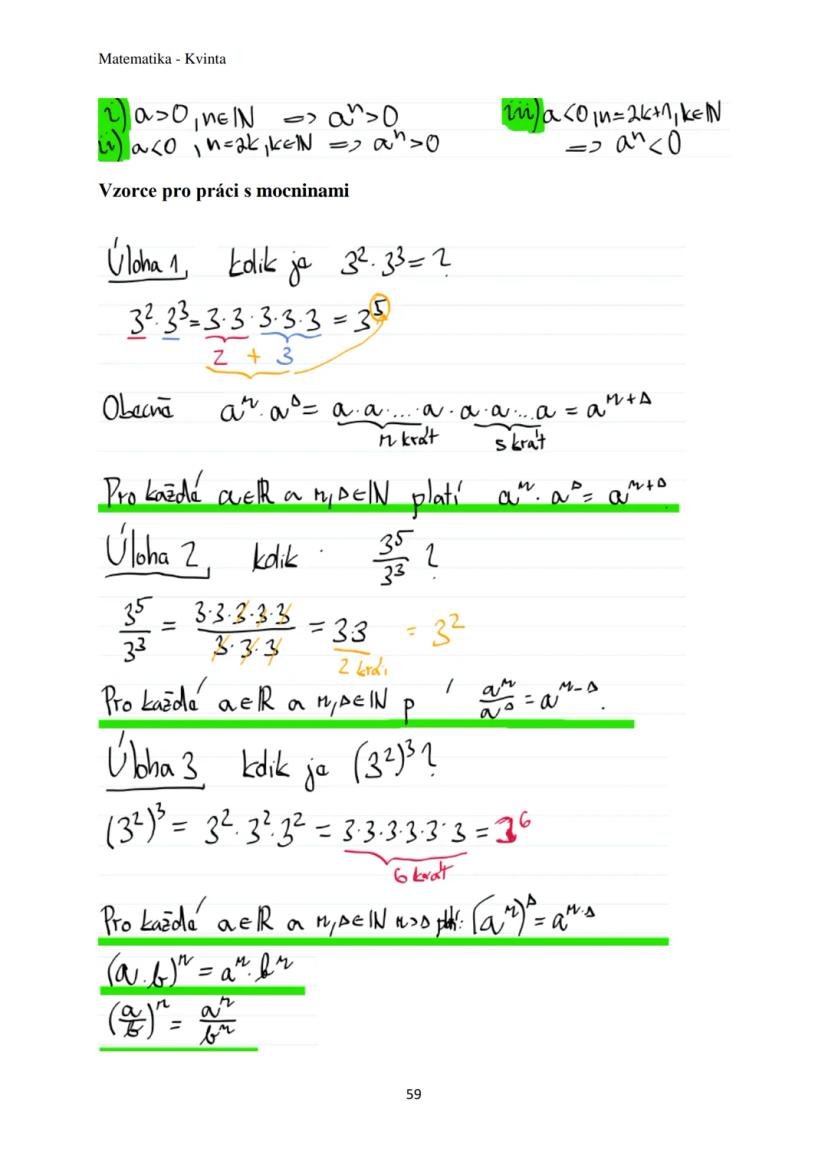 Matematika - Kvinta
i) a>0, n∈ℕ => aⁿ>0
ii) a<0, n=2k, k∈ℕ => aⁿ>0
iii) a<0, n=2k+1, k∈ℕ
=> aⁿ<0
Vzorce pro práci s mocninami
Úloha 1, kolik je 3²·3³=?
3²·3³=3·3·3·3·3 = 3⁵
2 + 3
Obecně aʳ·aˢ= a·a·...·a·a·a·...a = aʳ⁺ˢ
r krát s krát
Pro každé a∈ℝ a r,s∈ℕ platí aʳ·aˢ= aʳ⁺ˢ
Úloha 2, kolik 3⁵/3³ ?
3⁵/3³ = 3·3·3·3·3/3·3·3 = 33 = 3²
2 krát
Pro každé a∈ℝ a r,s∈ℕ p aʳ/aˢ = aʳ⁻ˢ.
Úloha 3, kolik je (3²)³?
(3²)³ = 3²·3²·3² = 3·3·3·3·3·3 = 3⁶
6 krát
Pro každé a∈ℝ a r,s∈ℕ r>s platí: (aʳ)ˢ = aʳ·ˢ
(a·b)ʳ = aʳ·bʳ
(a/b)ʳ = aʳ/bʳ
59